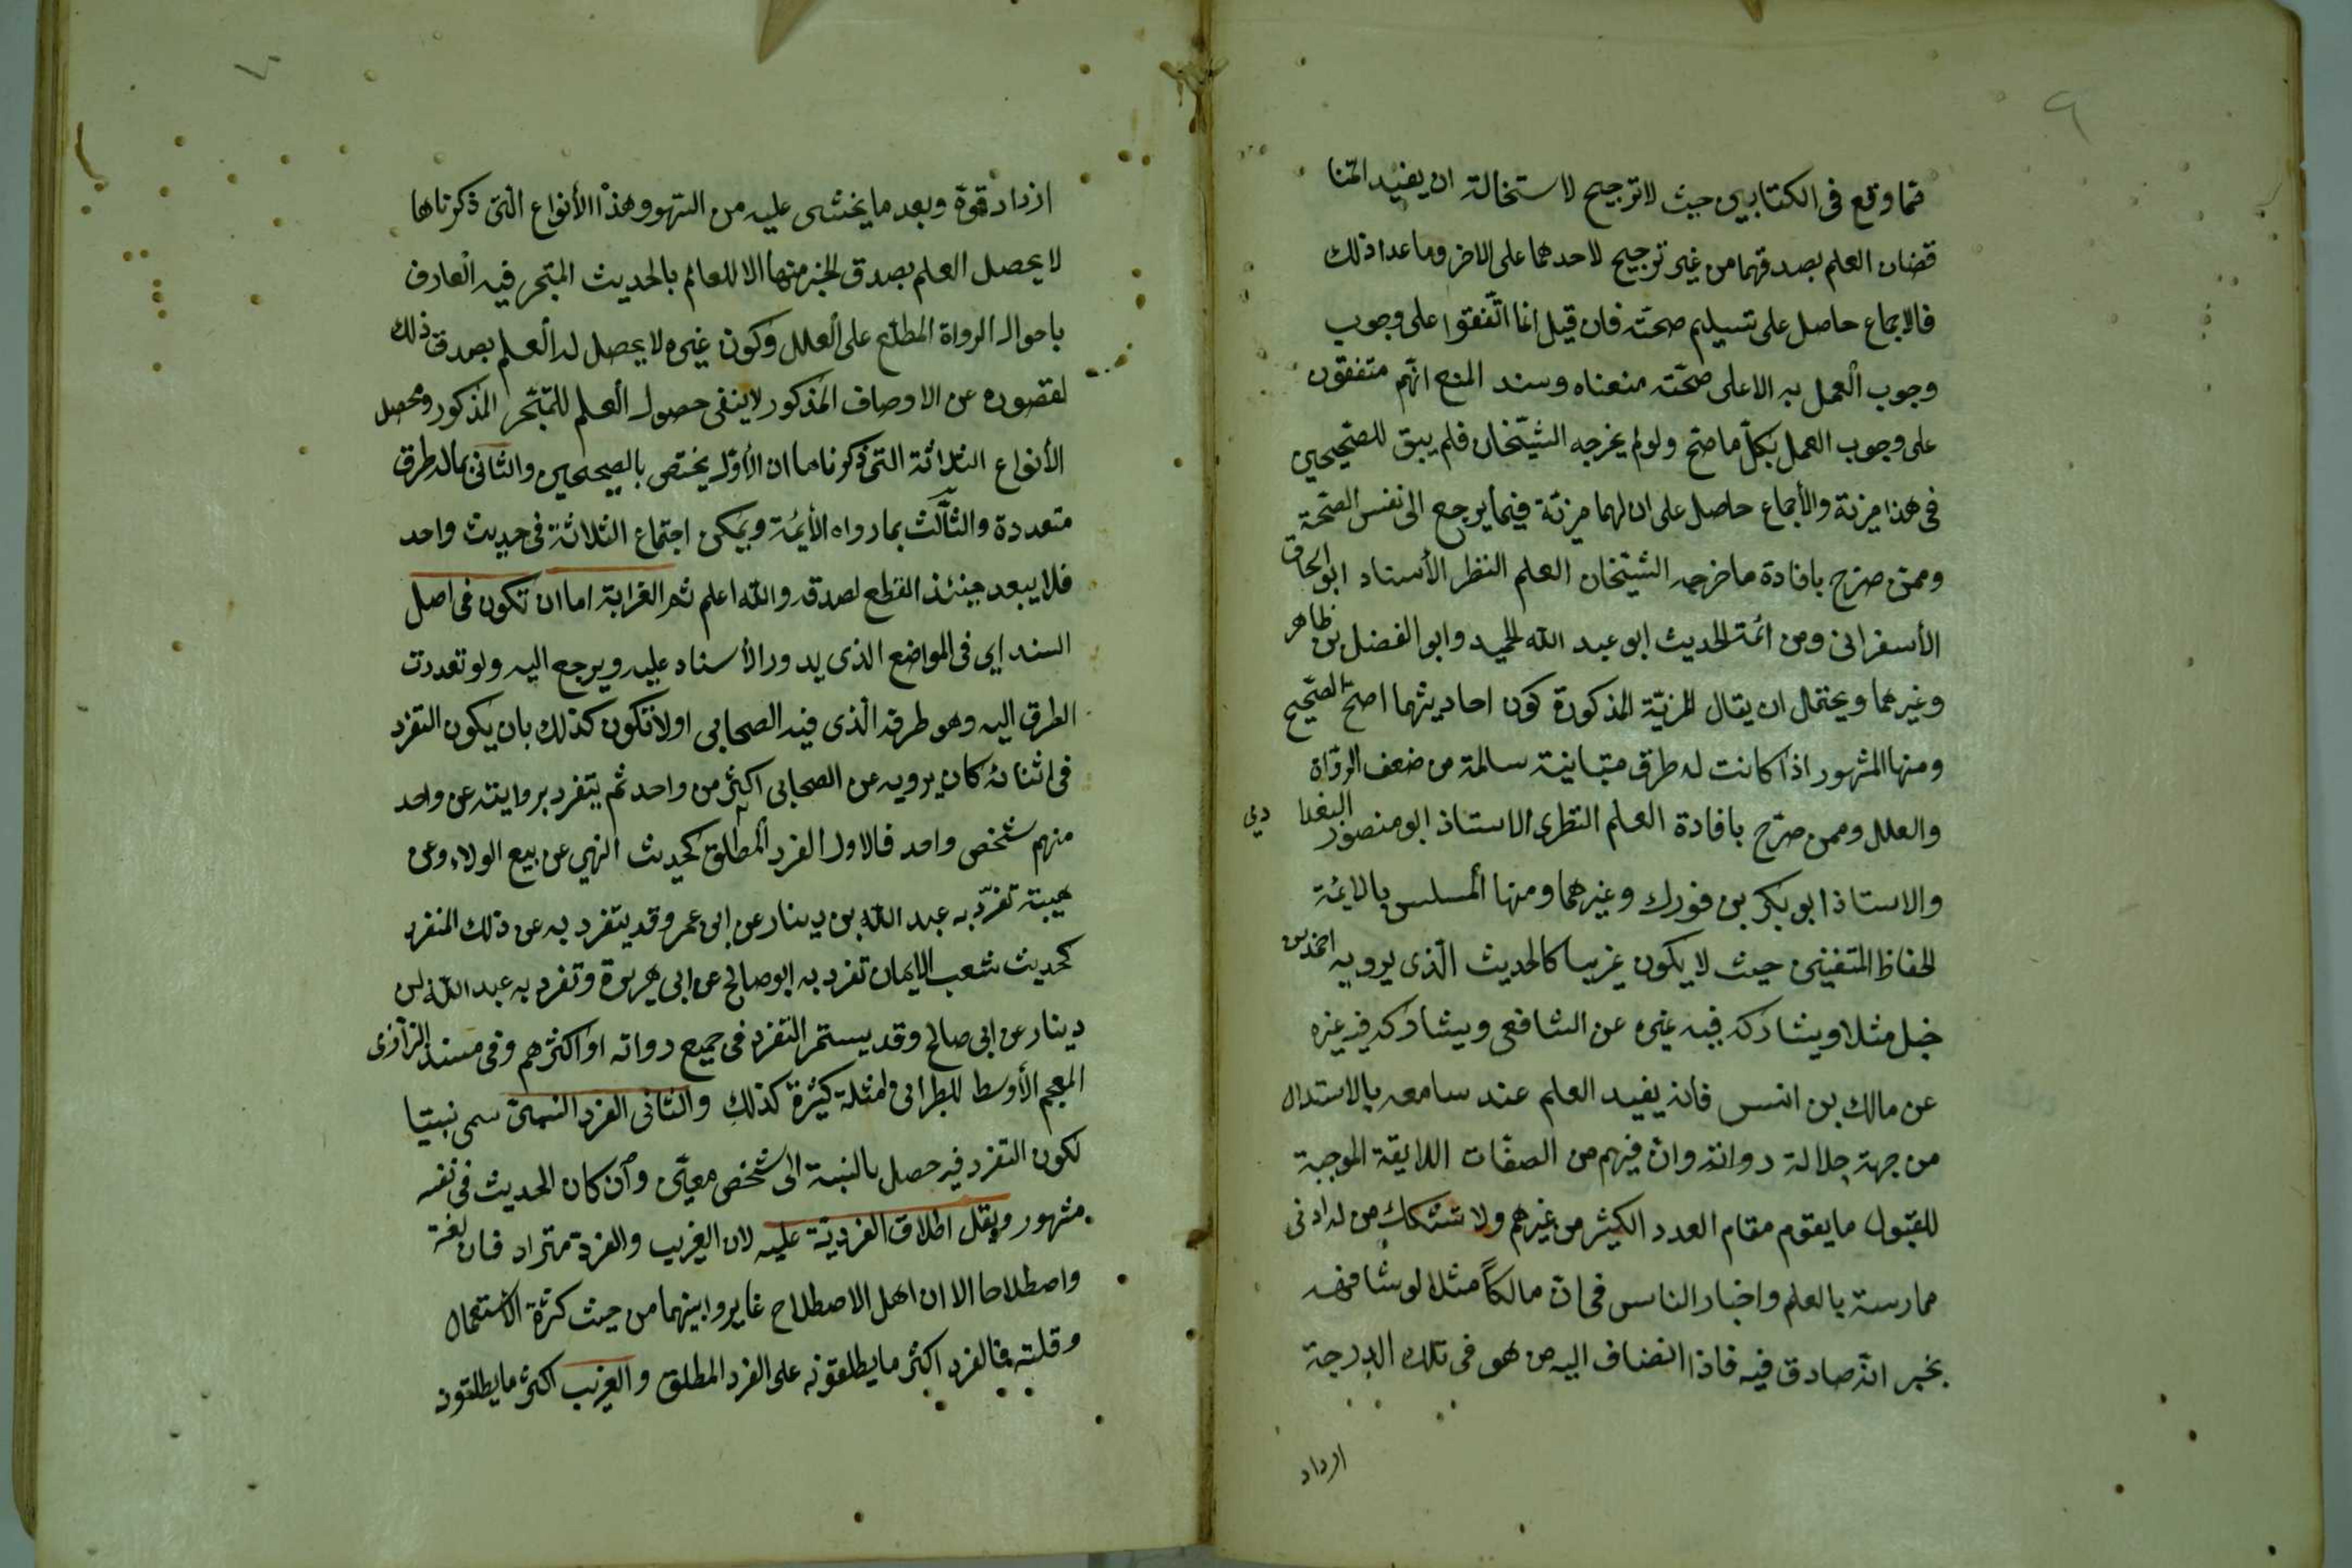 ٩
مما وقع فى الكتابين حيث لا ترجيح لاستخالة ان يفيد المتنا
قضان العلم بصدقهما من غير ترجيح لاحدهما على الاخر وما عدا ذلك
فالاجماع حاصل على تسليم صحته فان قيل انما اتّفقوا على وجوب
وجوب العمل به الا على صحّته منعناه وسند المنع انّهم متفقون
على وجوب العمل بكلّ ما صحّ ولو لم يخرجه الشيّخان فلم يبق للصّحيحين
فى هذا مزية والأجماع حاصل على ان لهما مزيّة فيما يرجع الى نفس الصّحة
وممن صرّح بافادة ما خرجه الشيّخان العلم النظر الأستاد ابو اسحاق
الأسفرانى ومن ائمة الحديث ابو عبد الله الحميد وابو الفضل بن طاهر
وغيرهما ويحتمل ان يقال المزيّة المذكورة كون احاديثهما اصحّ الصّحيح
ومنها المشهور اذا كانت له طرق متبانية سالمة من ضعف الروّاة
والعلل وممن صرّح بافادة العلم النظرى الاستاذ ابو منصور البغدا دى
والاستاذ ابو بكر بن فورك وغيرهما ومنها المسلس بالايمّة
الحفاظ المتفينى حيث لا يكون غريبا كالحديث الّذى يرويه احمد بن
خبل مثلا ويشاركه فيه غيره عن الشافعى ويشاركه فيه غيره
عن مالك بن انس فانه يفيد العلم عند سامعه بالاستدال
من جهة جلالة رواته وان فيهم من الصفّات اللايقة الموجبة
للقبول ما يقوم مقام العدد الكيثر من غيرهم ولا شتكك من له ادنى
ممارسة بالعلم واخبار الناس فى انّ مالكاً مثلا لو شافهه
بخبر انّه صادق فيه فاذا انضاف اليه من هو فى تلك الدرجة
ازداد
١٠
ازداد قوّة وبعد ما يخشى عليه من السّهو وهذا الأنواع الّتى ذكرناها
لا يحصل العلم بصدق الخبر منها الا للعالم بالحديث المتبحر فيه العارف
باحوال الرواة المطلع على العلل وكون غيره لا يحصل له العلم بصدق ذلك
لقصوره عن الاوصاف المذكور لا ينفى حصول العلم للمتبّحر المذكور ومحصل
الأنواع الثلاثة التى ذكرناها ان الأوّل يختص بالصحيحين والثانى بما له طرق
متعددة والثالث بما رواه الأيمّة ويمكن اجتماع الثلاثة فى حديث واحد
فلا يبعد حينئذ القطع لصدقه والله اعلم ثم الغرابة اما ان تكون فى اصل
السند اي فى المواضع الذى يدور الأسناد عليه ويرجع اليه ولو تعددت
الطرق اليه وهو طرفه الّذى فيه الصحابى اولا تكون كذلك بان يكون التفرد
فى اثنائه كان يرويه عن الصحابى اكثر من واحد ثم يتفرد بروايته عن واحد
منهم شخص واحد فالاول الفرد المطلق كحديث النهي عن بيع الولاء وعن
هيبته تفرّد به عبد الله بن دينار عن ابن عمر وقد يتفرد به عن ذلك المنفرد
كحديث شعب الايمان تفرد به ابو صالح عن ابى هريرة وتفرد به عبد الله بن
دينار عن ابى صالح وقد يستمر التفرد فى جميع رواته او اكثرهم وفى مسند
المعجم الأوسط للبطرانى امثلة كثيرة كذلك والثانى الفرد النسبىّ سمى نسبيّا
لكون التفرد فيه حصل بالنسبة الى شخص معيّن وان كان الحديث فى نفسه
مشهور ويقل اطلاق الفرديّة عليه لان الغريب والفرد مترادفان لغة
واصطلاحا الا ان اهل الاصطلاح غايروا بينهما من حيث كثرة الاستعمال
وقلته فالفرد اكثر ما يطلقونه على الفرد المطلق والغريب اكثر ما يطلقون